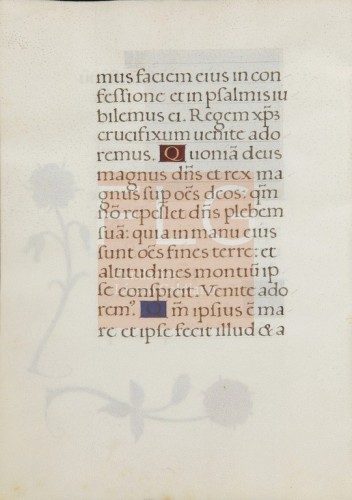 mus faciem eius in con
fessione et in psalmis iu
bilemus ei. Regem xp̄ȝ
crucifixum uenite ado
remus. Quoniā deus
magnus dn̄s et rex ma
gnus sup oēs deos: qm̄
nō repellet dn̄s plebem
suā: quia in manu eius
sunt oēs fines terre: et
altitudines montiū ip
se conspicit. Venite ado
rem⁹. Qm̄ ipsius ē ma
re et ipse fecit illud & a